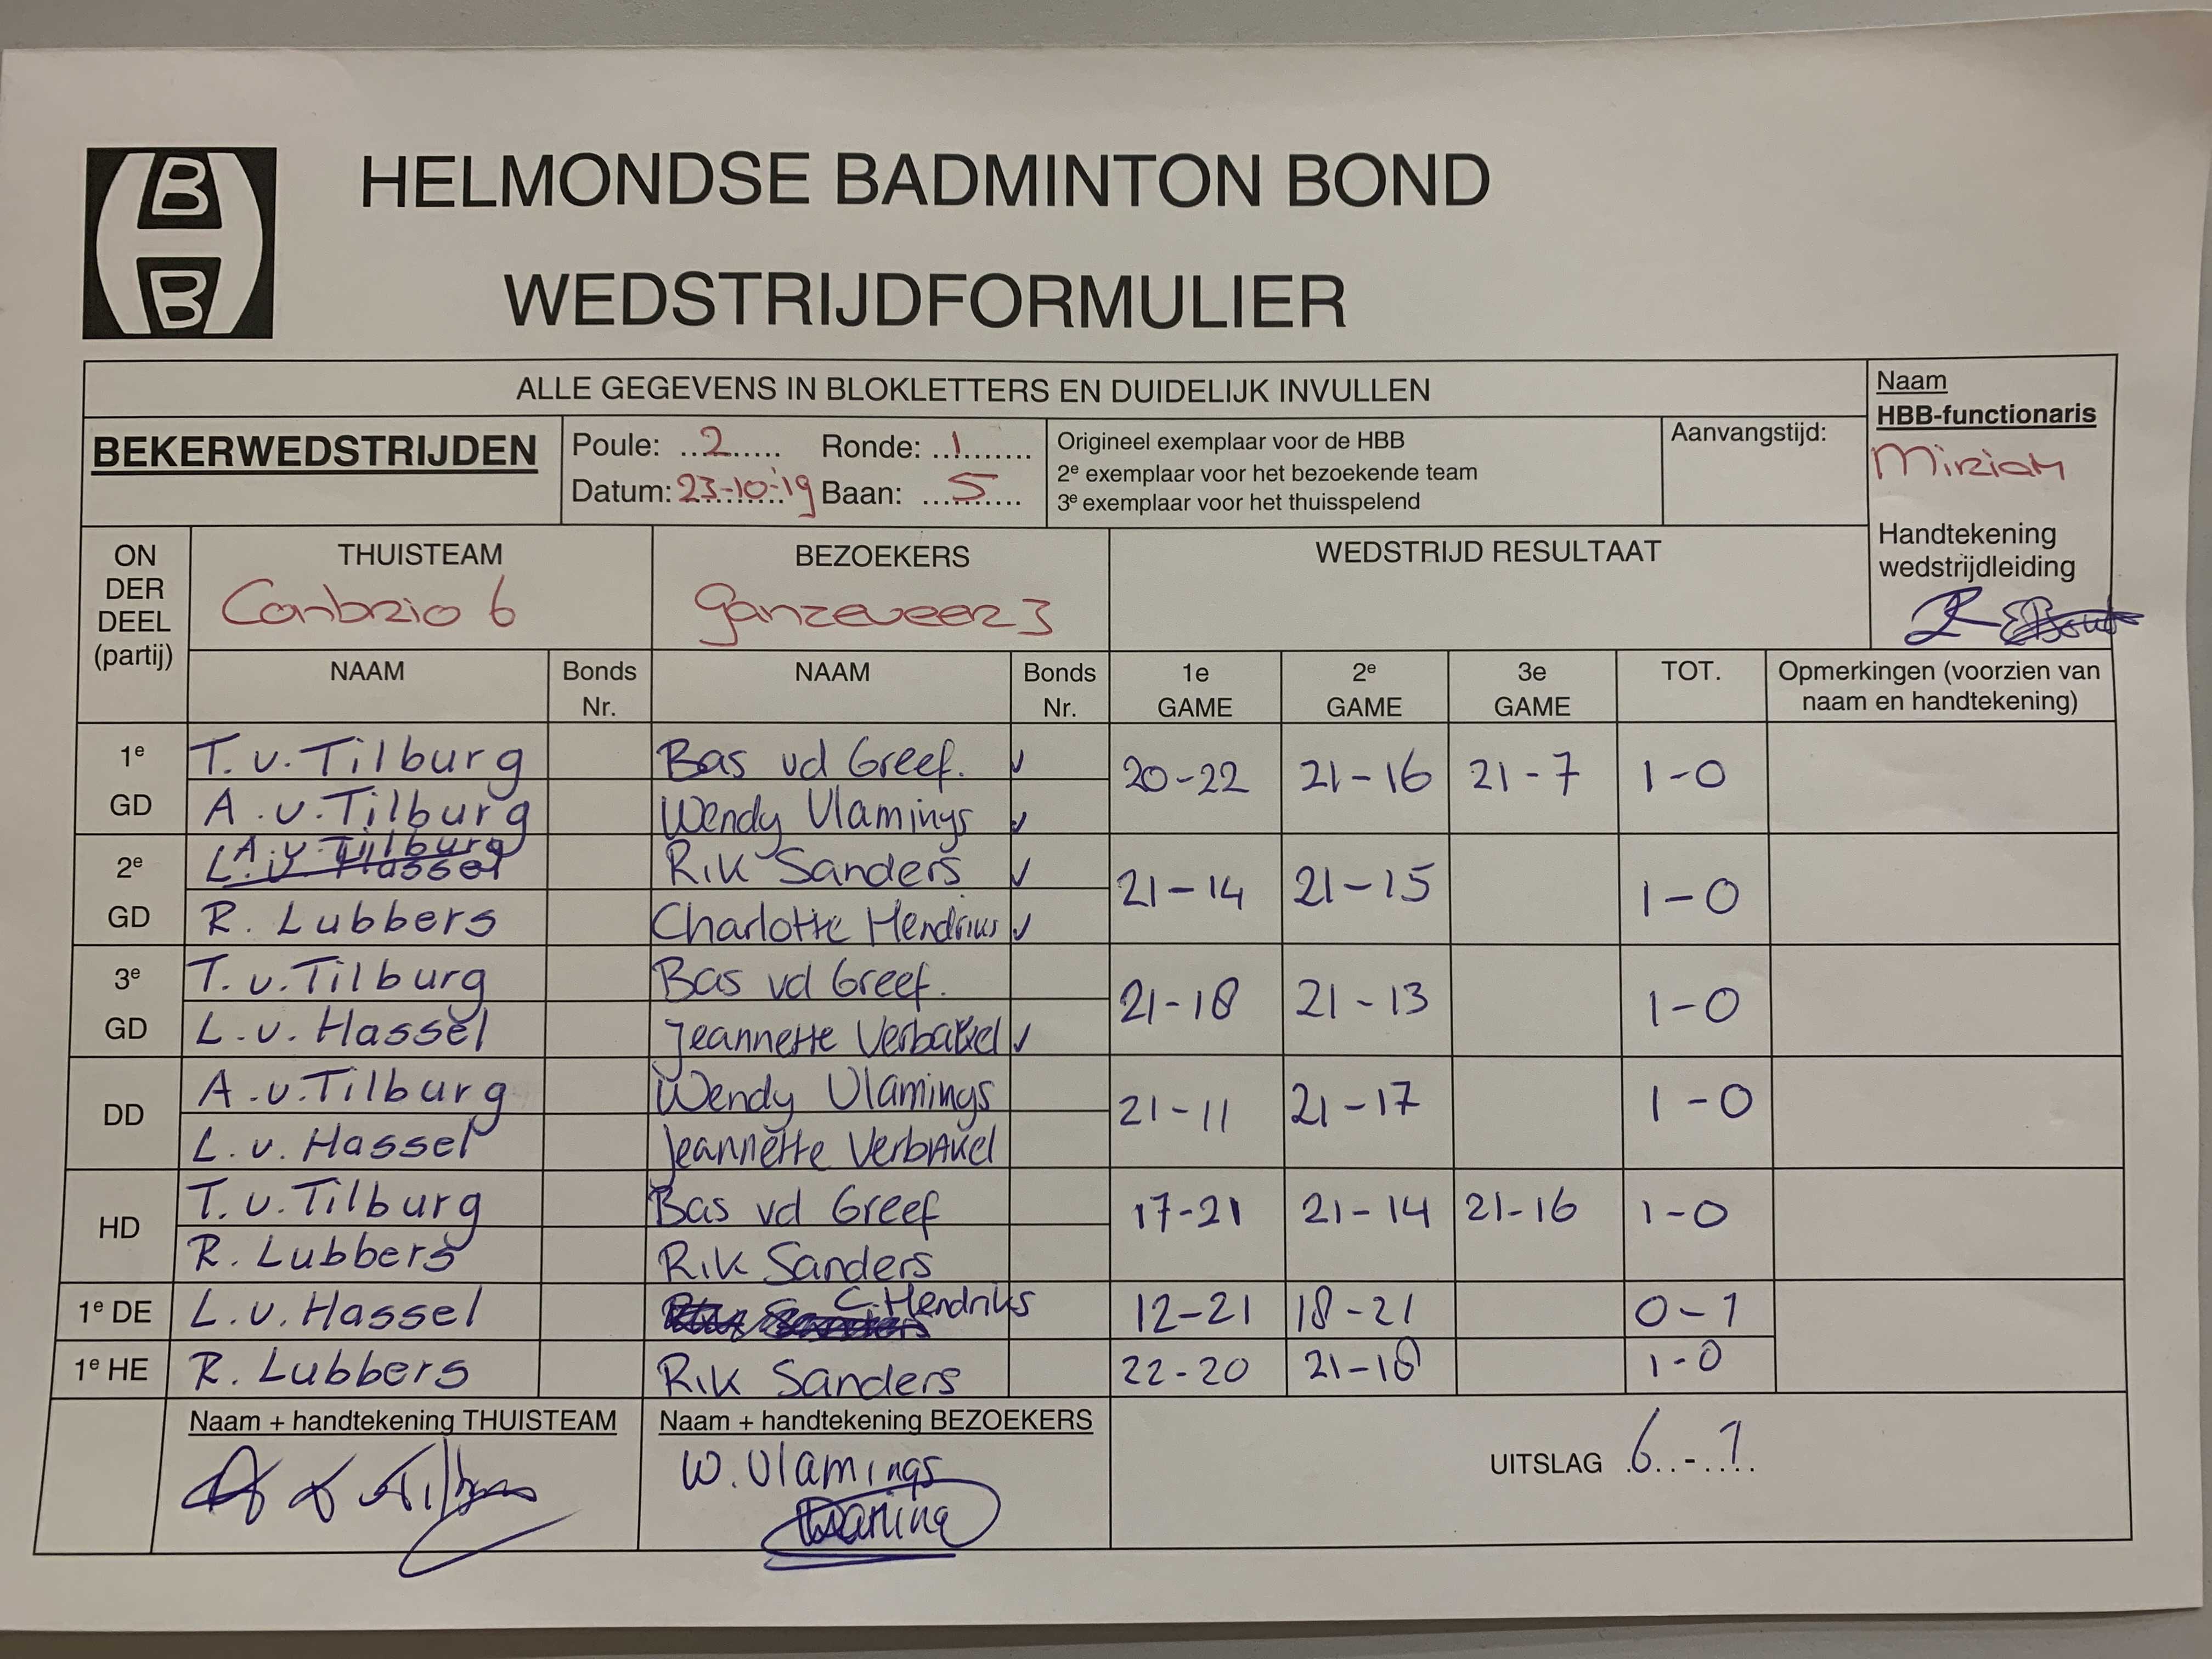 B
H
B
HELMONDSE BADMINTON BOND
WEDSTRIJDFORMULIER
ALLE GEGEVENS IN BLOKLETTERS EN DUIDELIJK INVULLEN
Naam
HBB-functionaris
Miriam
Handtekening
wedstrijdleiding
BEKERWEDSTRIJDEN
Poule: ..2..... Ronde: ..1.......
Datum: 23-10-'19 Baan: ....5.....
Origineel exemplaar voor de HBB
2e exemplaar voor het bezoekende team
3e exemplaar voor het thuisspelend
Aanvangstijd:
ON
DER
DEEL
(partij)
THUISTEAM
Conbrio 6
BEZOEKERS
Ganzeveer 3
WEDSTRIJD RESULTAAT
NAAM Bonds Nr. NAAM Bonds Nr. 1e GAME 2e GAME 3e GAME TOT. Opmerkingen (voorzien van naam en handtekening)
1e T. v. Tilburg Bas vd Greef. ✓ 20-22 21-16 21-7 1-0
GD A. v. Tilburg Wendy Vlamings ✓
2e A. v. Tilburg Rik Sanders ✓ 21-14 21-15 1-0
L. v. Hassel
GD R. Lubbers Charlotte Hendriks ✓
3e T. v. Tilburg Bas vd Greef. 21-18 21-13 1-0
GD L. v. Hassel Jeannette Verbakel ✓
DD A. v. Tilburg Wendy Vlamings 21-11 21-17 1-0
L. v. Hassel Jeannette Verbakel
HD T. v. Tilburg Bas vd Greef 17-21 21-14 21-16 1-0
R. Lubbers Rik Sanders
1e DE L. v. Hassel Rik Sanders C. Hendriks 12-21 18-21 0-1
1e HE R. Lubbers Rik Sanders 22-20 21-18 1-0
Naam + handtekening THUISTEAM
Naam + handtekening BEZOEKERS
W. Vlamings
UITSLAG .6..-.1...